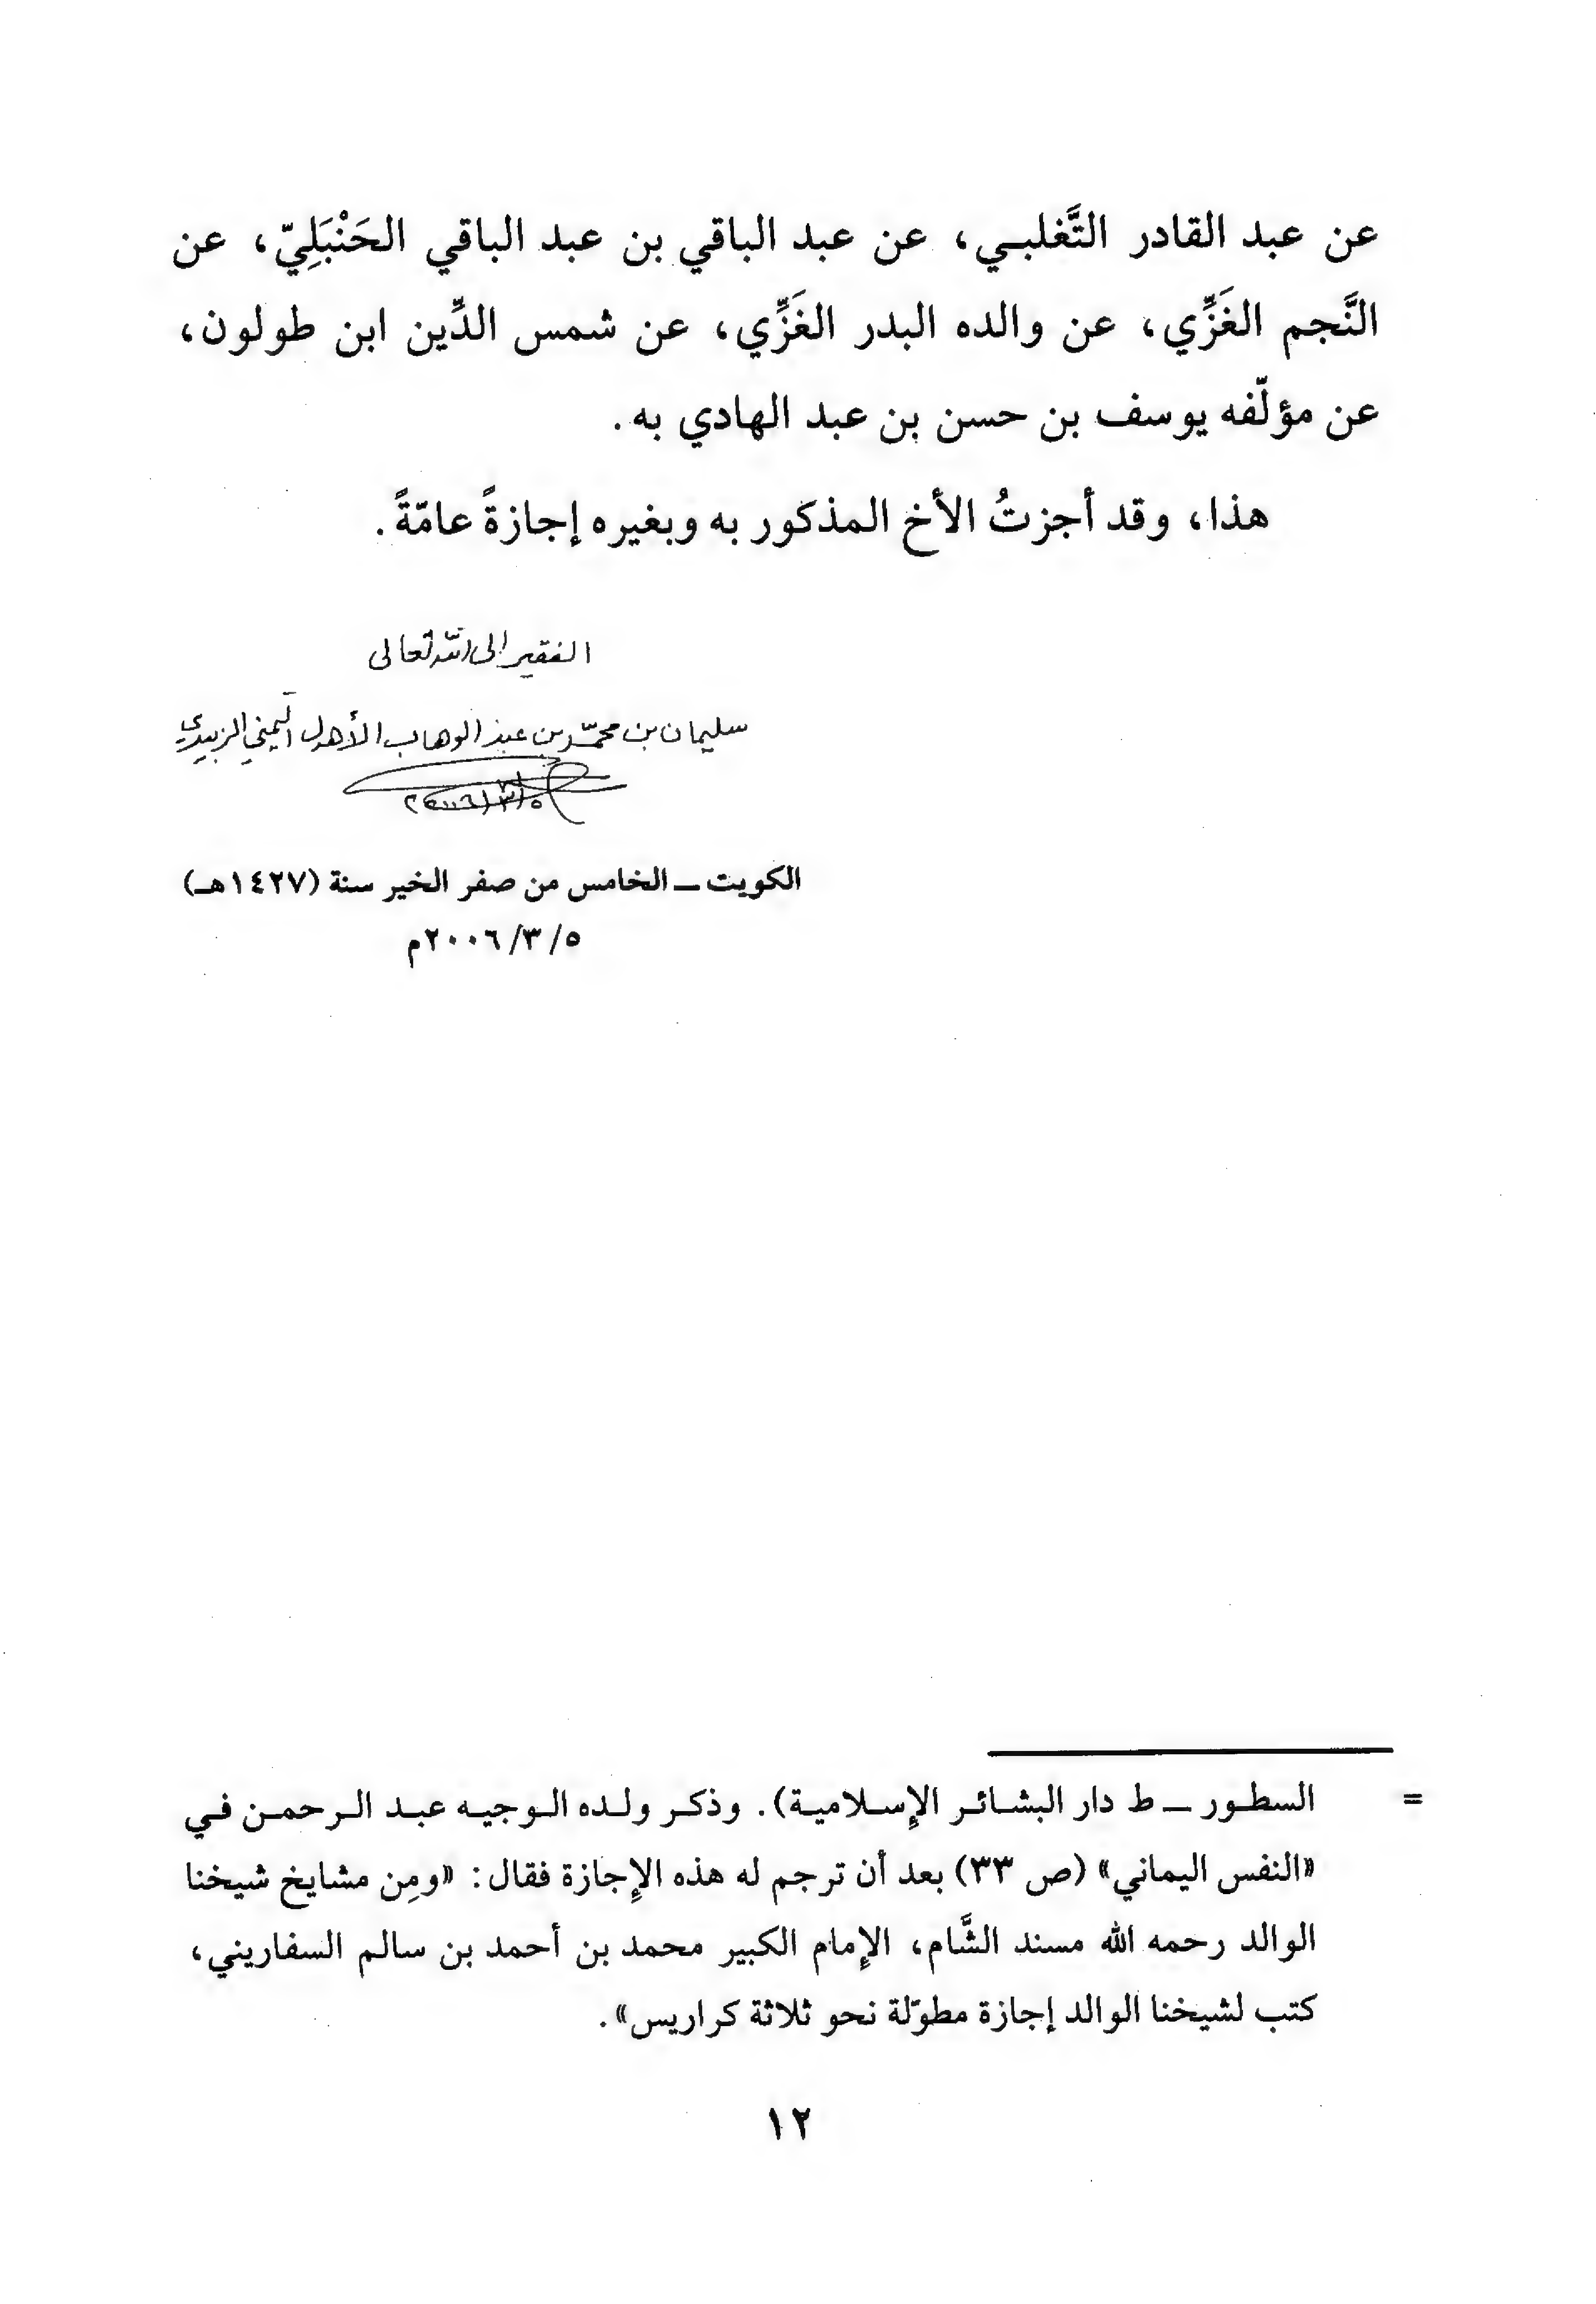 عن عبد القادر التَّغلبـي، عن عبد الباقي بن عبد الباقي الحَنْبَلِيّ، عن
النَّجم الغَزِّي، عن والده البدر الغَزِّي، عن شمس الدِّين ابن طولون،
عن مؤلّفه يوسف بن حسن بن عبد الهادي به.
هذا، وقد أجزتُ الأخ المذكور به وبغيره إجازةً عامّةً.
الفقير إلى الله تعالى
سليمان بن محمّد بن عبد الوهاب الأهدل اليمني الزبيدي
٢٠٠٦/٣/٥
الكويت ــ الخامس من صفر الخير سنة (١٤٢٧هـ)
٢٠٠٦/٣/٥م
= السطـور ــ ط دار البشـائـر الإسـلاميـة). وذكـر ولـده الـوجيـه عبـد الـرحمـن فـي
«النفس اليماني» (ص ٣٣) بعد أن ترجم له هذه الإجازة فقال: «ومِن مشايخ شيخنا
الوالد رحمه الله مسند الشَّام، الإمام الكبير محمد بن أحمد بن سالم السفاريني،
كتب لشيخنا الوالد إجازة مطوّلة نحو ثلاثة كراريس».
١٢